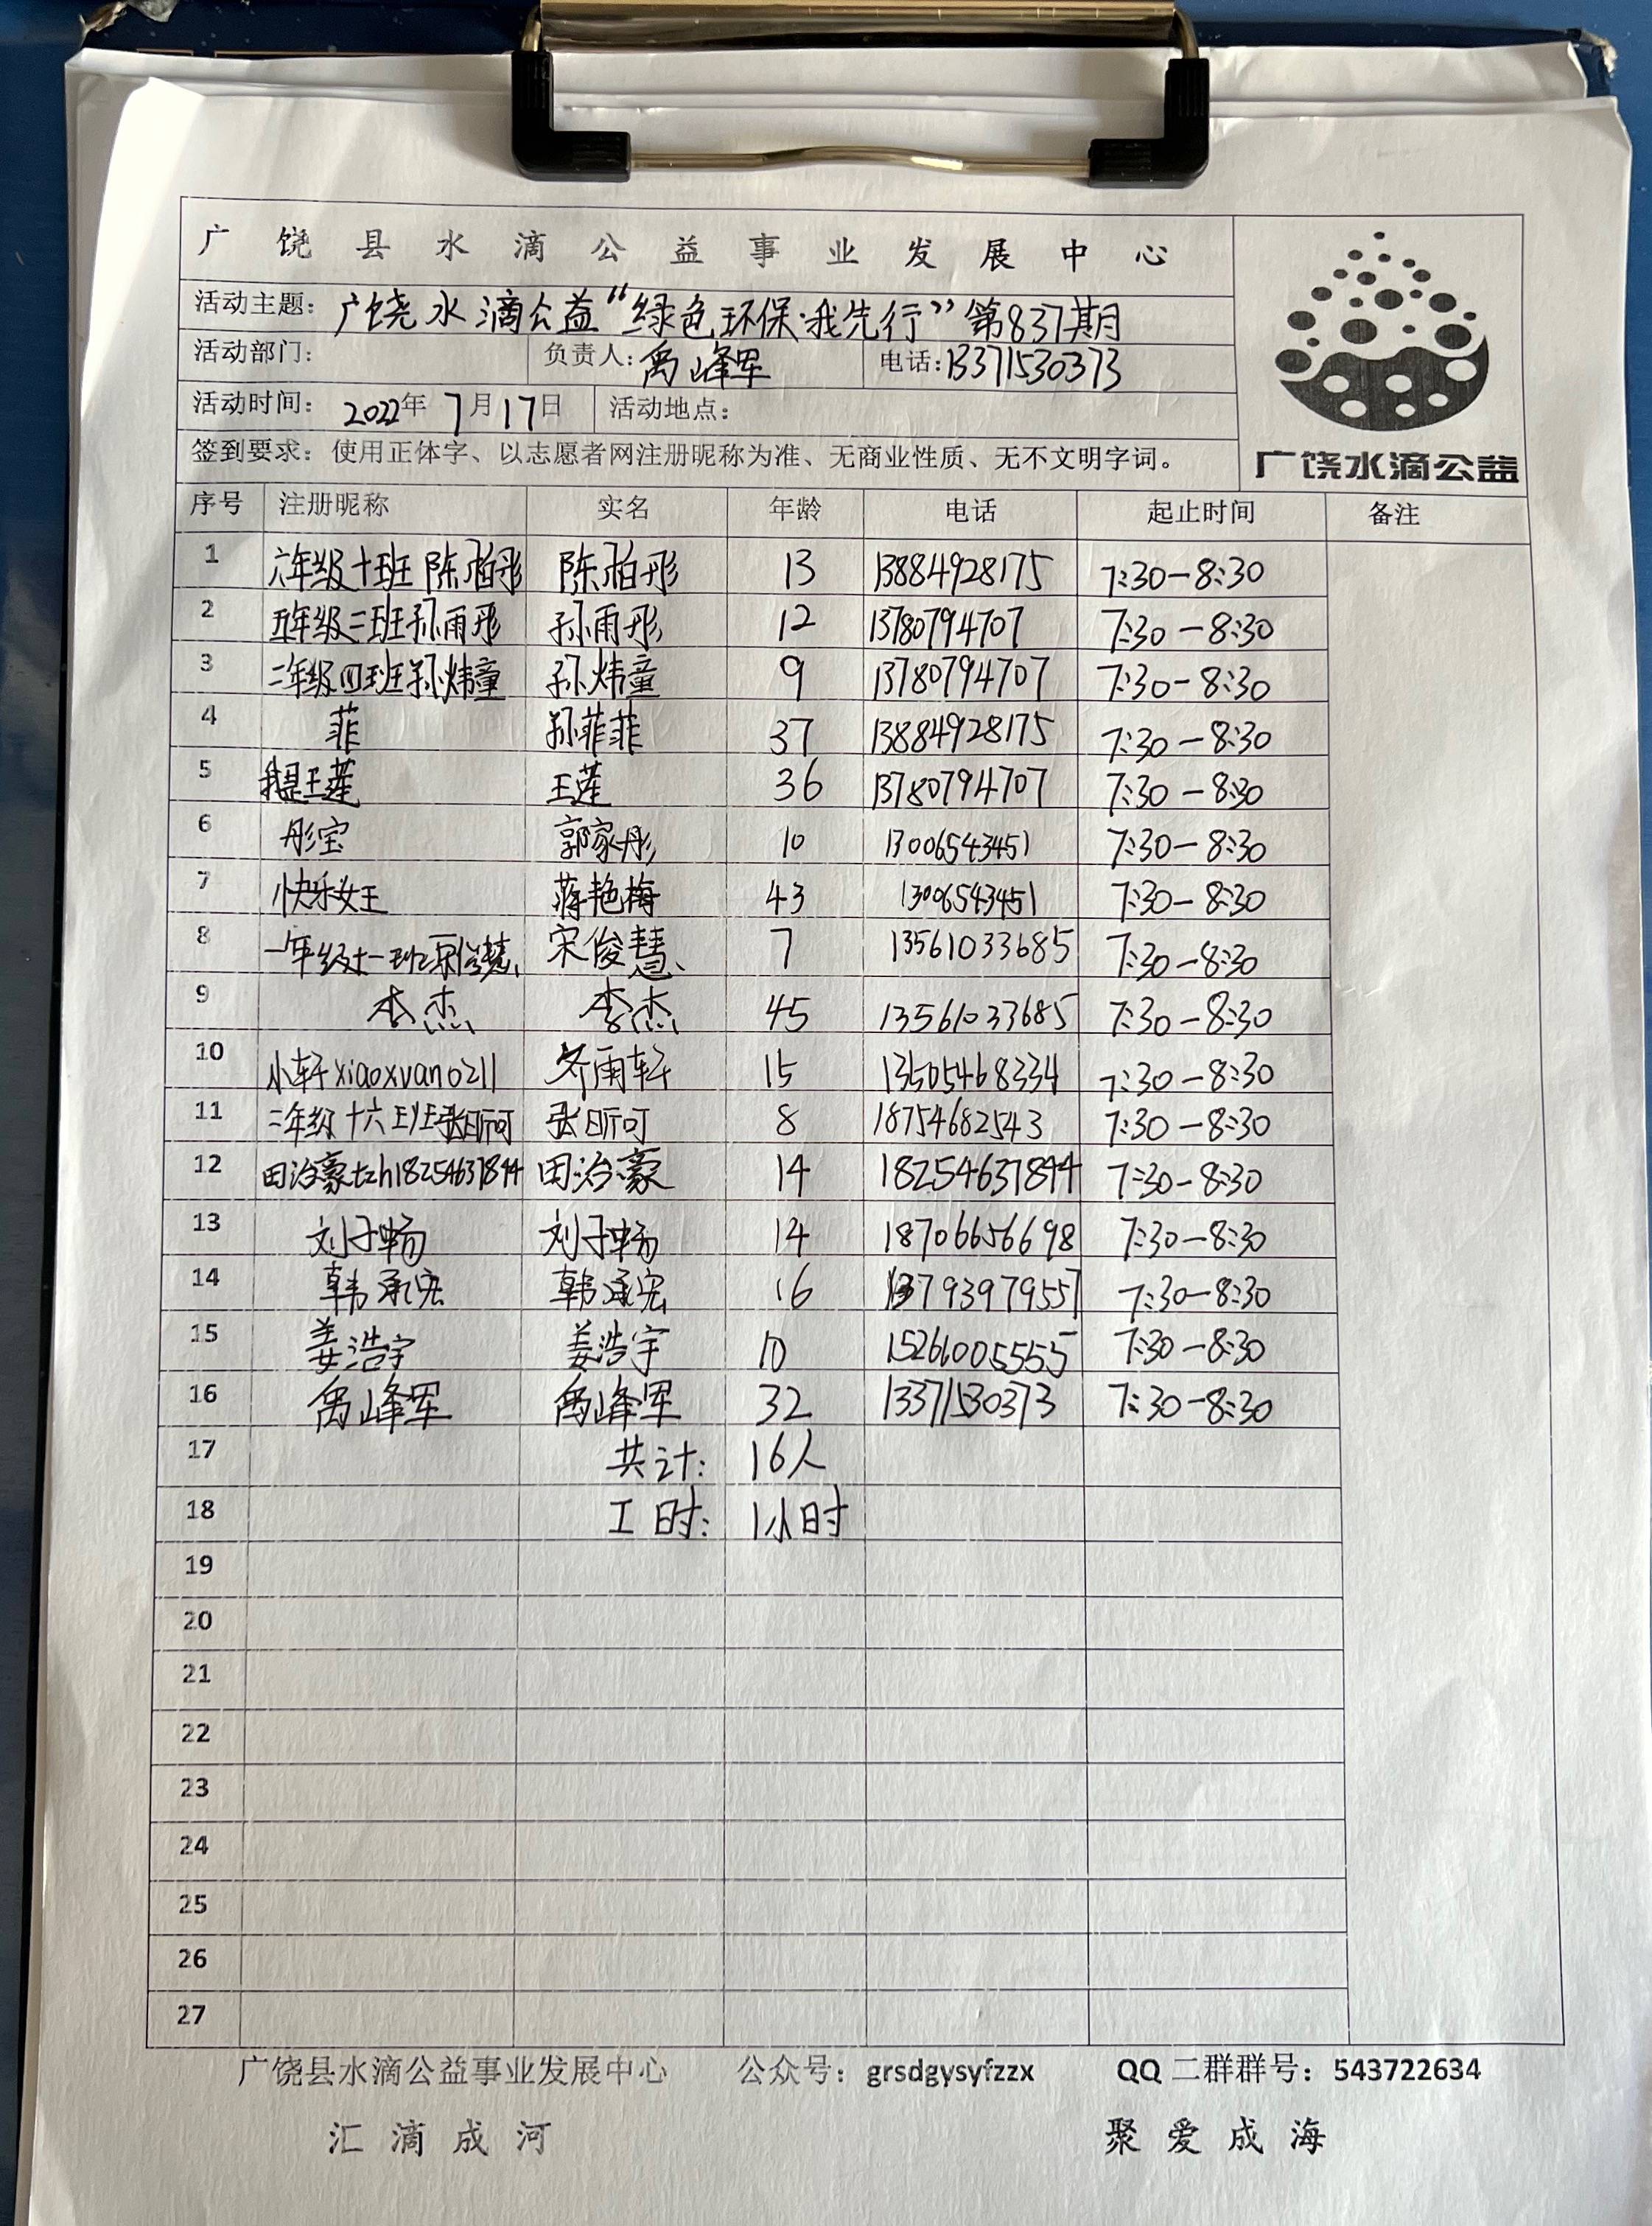 广饶县水滴公益事业发展中心
活动主题：广饶水滴公益“绿色环保·我先行”第837期
活动部门： 负责人：禹峰军 电话：13371530373
活动时间：2022年7月17日 活动地点：
签到要求：使用正体字、以志愿者网注册昵称为准、无商业性质、无不文明字词。
广饶水滴公益
序号 注册昵称 实名 年龄 电话 起止时间 备注
1 六年级十班陈柏彤 陈柏彤 13 13884928175 7:30-8:30
2 五年级三班孙雨彤 孙雨彤 12 13780794707 7:30-8:30
3 二年级四班孙炜童 孙炜童 9 13780794707 7:30-8:30
4 菲 孙菲菲 37 13884928175 7:30-8:30
5 我是王莲 王莲 36 13780794707 7:30-8:30
6 彤宝 郭家彤 10 13006543451 7:30-8:30
7 快乐女王 蒋艳梅 43 13006543451 7:30-8:30
8 一年级十一班宋俊慧 宋俊慧 7 13561033685 7:30-8:30
9 李杰 李杰 45 13561033685 7:30-8:30
10 小轩xiaoxuan0211 雨轩 15 13505468334 7:30-8:30
11 二年级十六班张昕可 张昕可 8 18754682543 7:30-8:30
12 田治豪tzh18254637844 田治豪 14 18254637844 7:30-8:30
13 刘子畅 刘子畅 14 18706656698 7:30-8:30
14 韩承宏 韩承宏 16 13793979557 7:30-8:30
15 姜浩宇 姜浩宇 10 15266005555 7:30-8:30
16 禹峰军 禹峰军 32 13371530373 7:30-8:30
17 共计： 16人
18 工时： 1小时
19
20
21
22
23
24
25
26
27
广饶县水滴公益事业发展中心 公众号：grsdgysyfzzx QQ二群群号：543722634
汇滴成河 聚爱成海